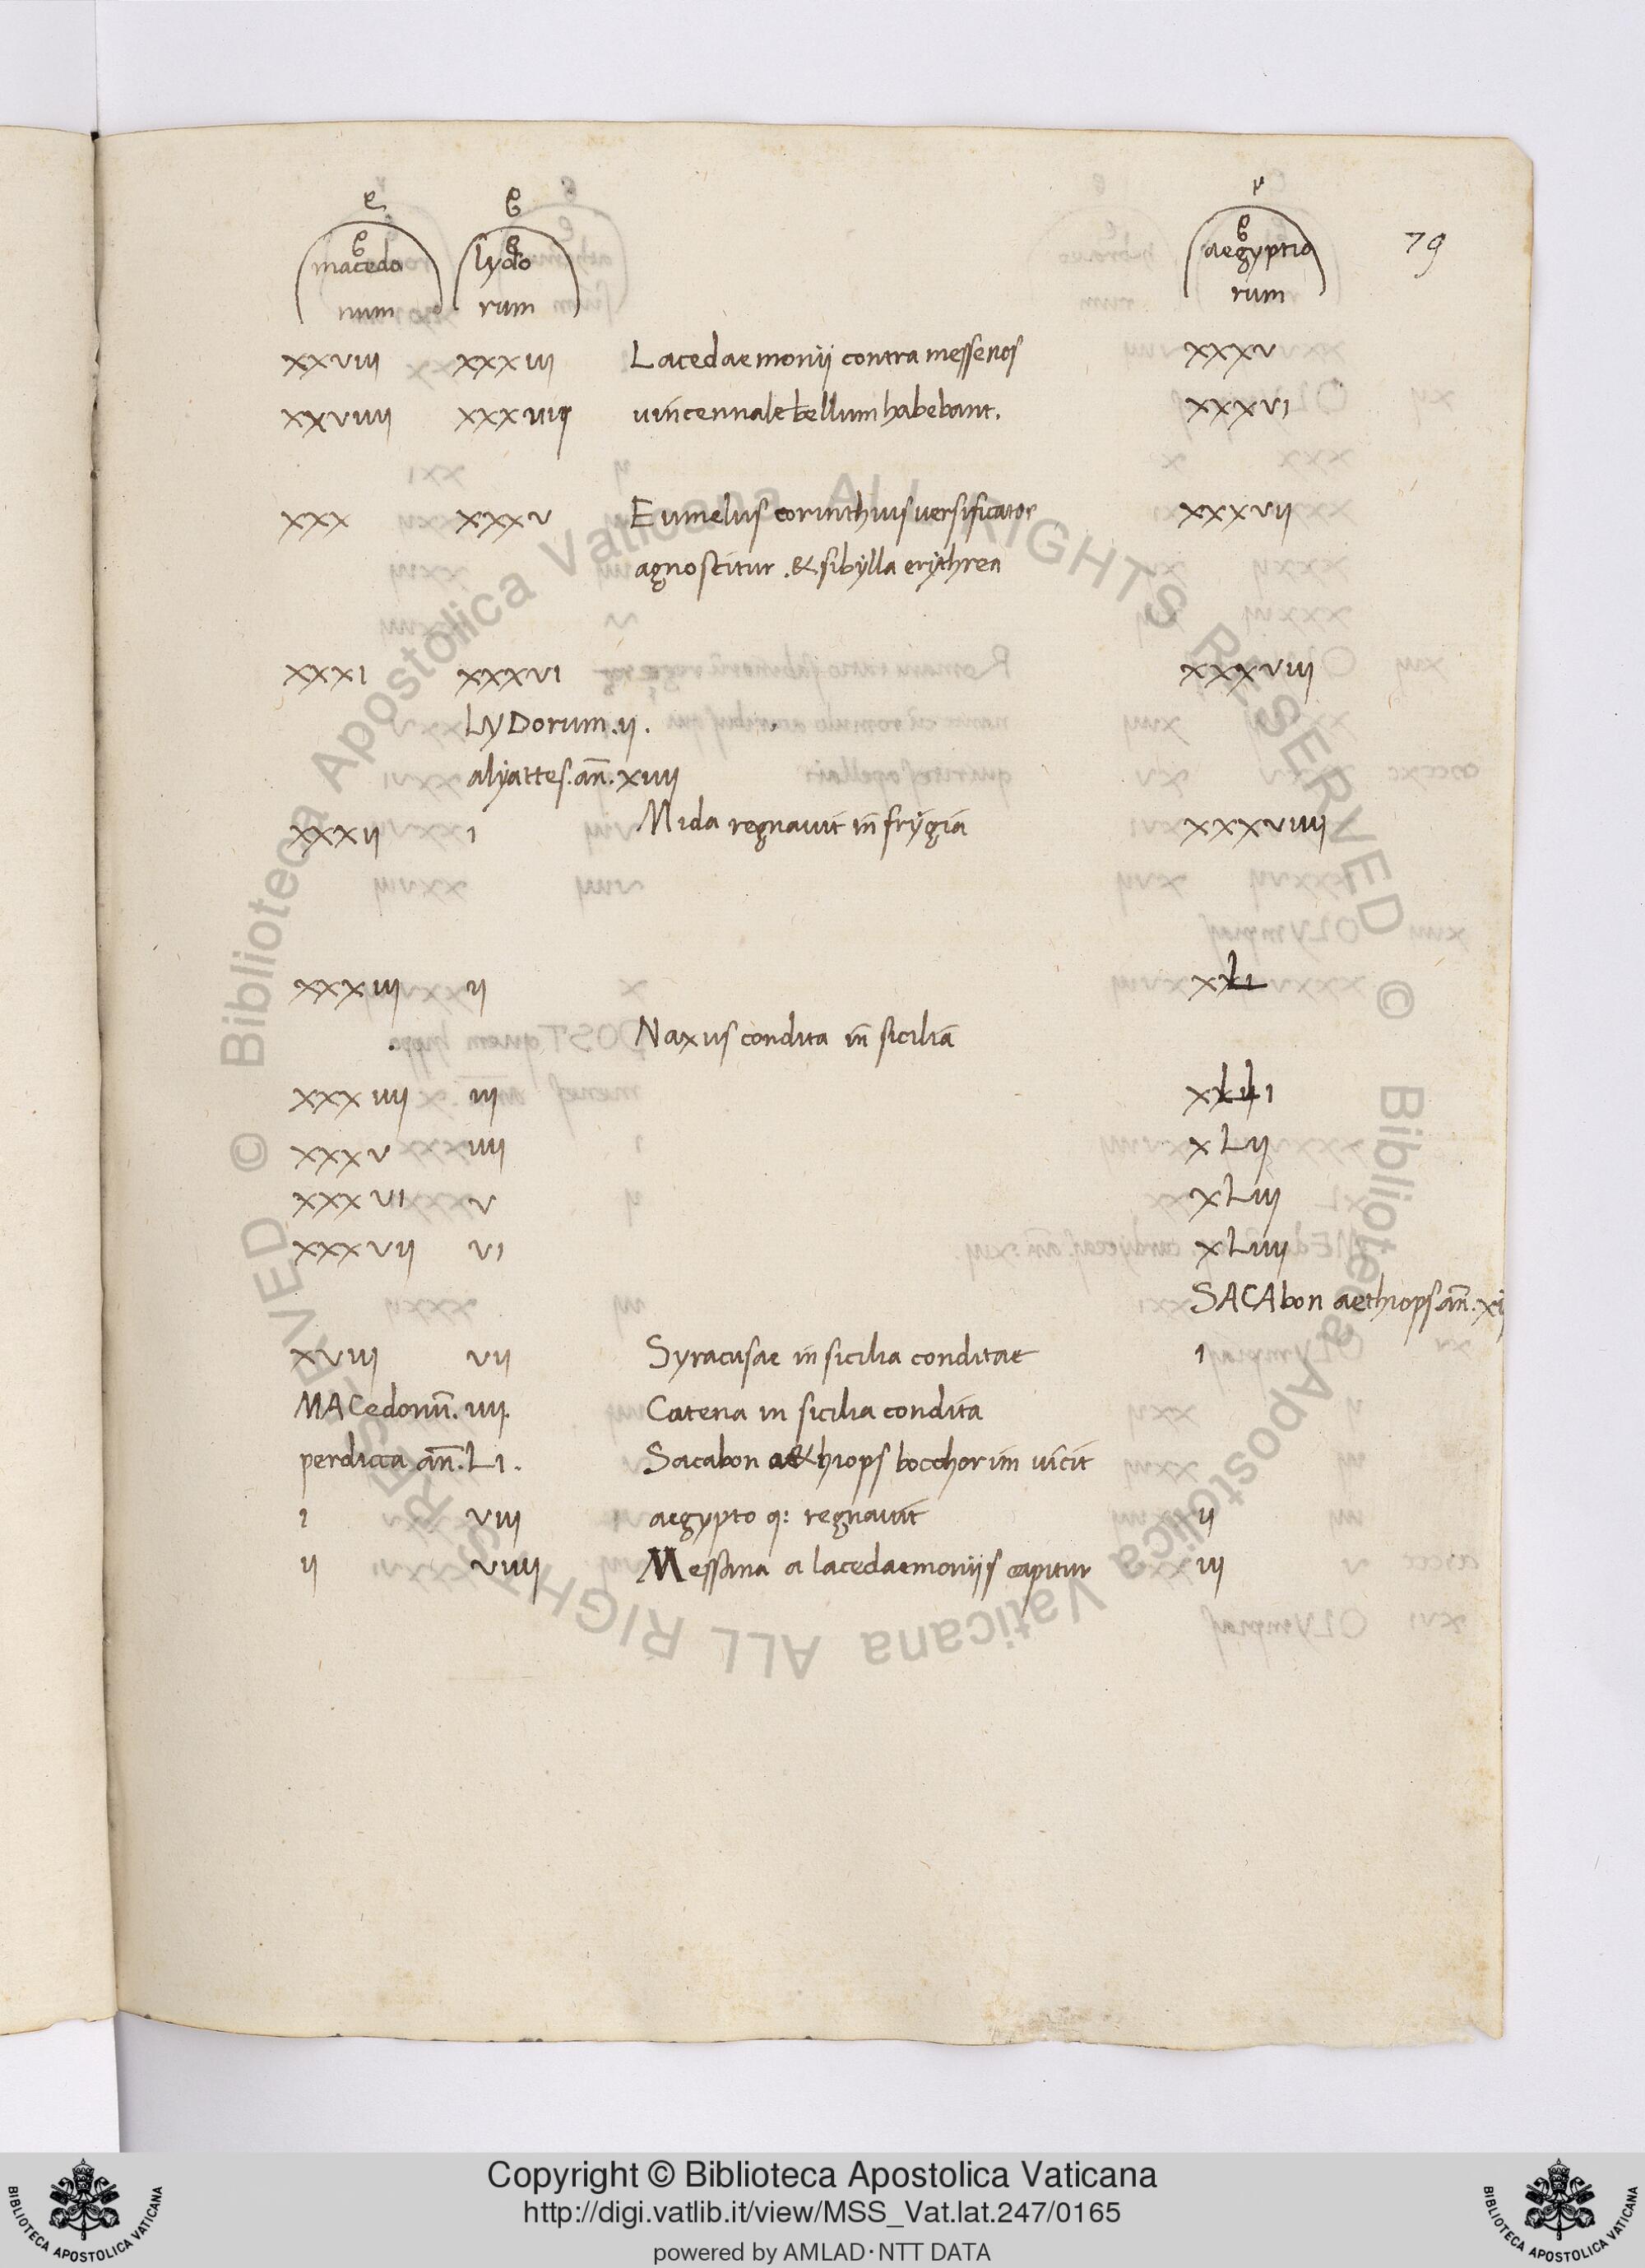 79
e e r
e e e
macedo lydo aegyptio
num rum rum
xxviii xxxiii Lacedaemonij contra messenos xxxv
xxviiii xxxiiij uincennale bellum habebant. xxxvi
xxx xxxv Eumelus corinthius uersificator xxxvij
agnoscitur . & sibylla erythrea
xxxi xxxvi xxxviij
LyDorum.ij.
alyattes.an̄.xiiij
xxxij i Mida regnauit in frygia xxxviiij
xxxiij ij xLi
Naxus condita in sicilia
xxxiiij iij
xxxv iiij xLij
xxxvi v xLiij
xxxvij vi xLiiij
SACAbon aethiops.an̄.xij
xviij vij Syracusae in sicilia conditae i
MACedonū. iiij. Catena in sicilia condita
perdicca an̄.Li. Sacabon aethiops bocchorim uicit
i viij aegypto q: regnauit ij
ij viiij Messana a lacedaemoniis capitur iij
© Biblioteca Apostolica Vaticana ALL RIGHTS RESERVED © Biblioteca Apostolica Vaticana ALL RIGHTS RESERVED
BIBLIOTECA APOSTOLICA VATICANA
Copyright © Biblioteca Apostolica Vaticana
http://digi.vatlib.it/view/MSS_Vat.lat.247/0165
powered by AMLAD·NTT DATA
BIBLIOTECA APOSTOLICA VATICANA